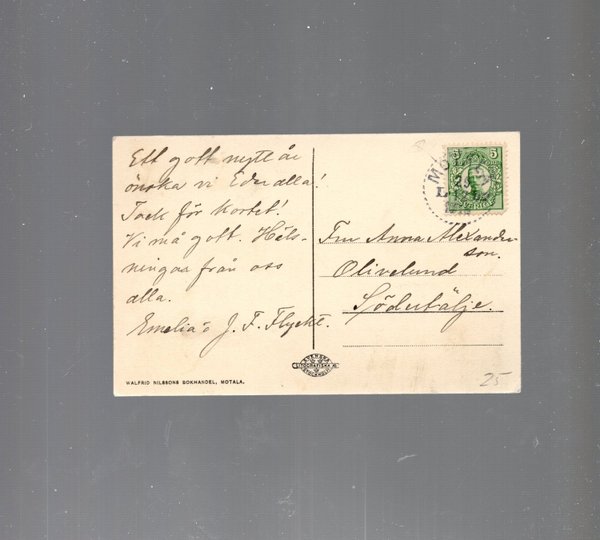 Ett gott nytt år
önska vi Eder alla!
Tack för kortet!
Vi må gott. Häls-
ningar från oss
alla.
Emelia o J. F. Flyckt.
Fru Anna Alexander-
son.
Olivelund
Södertälje.
5 5
WALFRID NILSSONS BOKHANDEL, MOTALA.
25